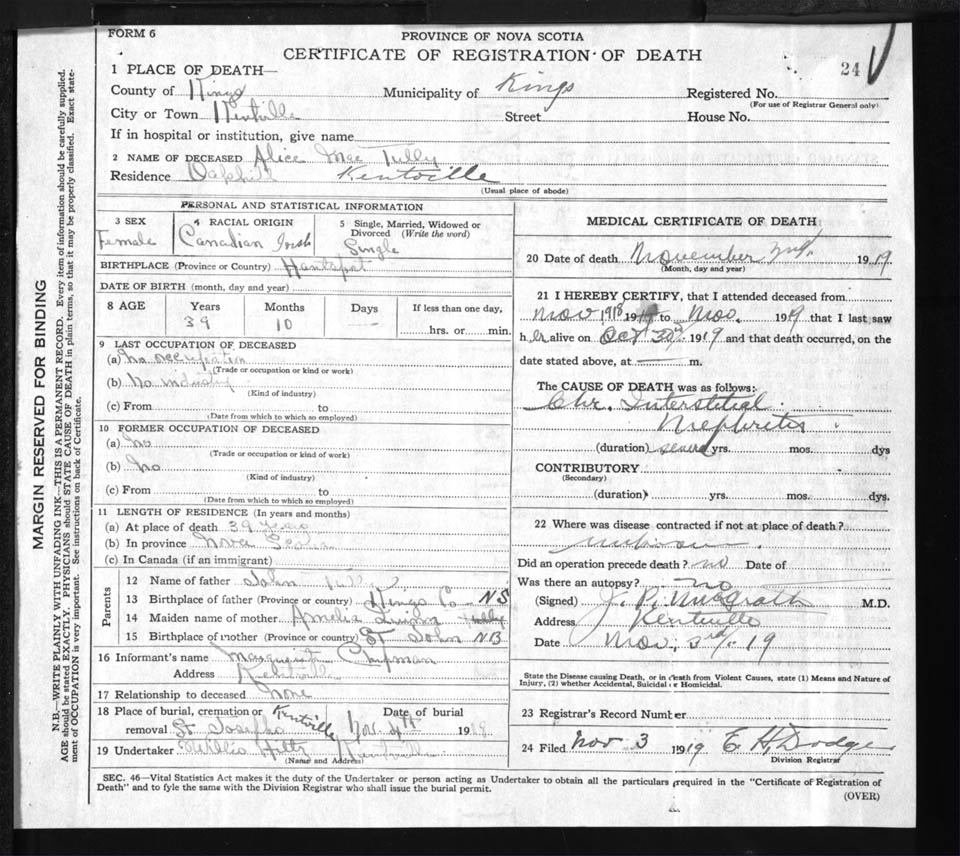 FORM 6
PROVINCE OF NOVA SCOTIA
CERTIFICATE OF REGISTRATION OF DEATH
24
1 PLACE OF DEATH—
County of Kings Municipality of Kings Registered No.
(For use of Registrar General only)
City or Town Kentville Street House No.
If in hospital or institution, give name
2 NAME OF DECEASED Alice Mae Tully
Residence Kentville
(Usual place of abode)
PERSONAL AND STATISTICAL INFORMATION
3 SEX Female
4 RACIAL ORIGIN Canadian Irish
5 Single, Married, Widowed or Divorced (Write the word) Single
BIRTHPLACE (Province or Country) Hantsport
DATE OF BIRTH (month, day and year)
8 AGE Years Months Days If less than one day,
39 10 — hrs. or min.
9 LAST OCCUPATION OF DECEASED
(a) No occupation
(Trade or occupation or kind or work)
(b) No industry
(Kind of industry)
(c) From to
(Date from which to which so employed)
10 FORMER OCCUPATION OF DECEASED
(a) No
(Trade or occupation or kind of work)
(b) No
(Kind of industry)
(c) From to
(Date from which to which so employed)
11 LENGTH OF RESIDENCE (In years and months)
(a) At place of death 39 years
(b) In province Nova Scotia
(c) In Canada (if an immigrant)
Parents
12 Name of father John Tully
13 Birthplace of father (Province or country) Kings Co NS
14 Maiden name of mother Amelia
15 Birthplace of mother (Province or country) St John NB
16 Informant's name Chipman
Address Kentville
17 Relationship to deceased None
18 Place of burial, cremation or removal St Josephs Kentville
Date of burial Nov. 4th 1919
19 Undertaker Kentville
(Name and Address)
MEDICAL CERTIFICATE OF DEATH
20 Date of death November 2nd. 1919
(Month, day and year)
21 I HEREBY CERTIFY, that I attended deceased from
Nov 1918 19 to Nov. 1919 that I last saw
h er alive on Oct 30th 1919 and that death occurred, on the
date stated above, at — m.
The CAUSE OF DEATH was as follows:
Chr. Interstitial
Nephritis
(duration) several yrs. mos. dys
CONTRIBUTORY
(Secondary)
(duration) yrs. mos. dys.
22 Where was disease contracted if not at place of death?
unknown.
Did an operation precede death? no Date of
Was there an autopsy? no
(Signed) J. P. McGrath M.D.
Address Kentville
Date Nov. 3rd. 19
State the Disease causing Death, or in death from Violent Causes, state (1) Means and Nature of
Injury, (2) whether Accidental, Suicidal or Homicidal.
23 Registrar's Record Number
24 Filed Nov 3 1919 E H Dodge
Division Registrar
SEC. 46—Vital Statistics Act makes it the duty of the Undertaker or person acting as Undertaker to obtain all the particulars required in the "Certificate of Registration of
Death" and to fyle the same with the Division Registrar who shall issue the burial permit.
(OVER)
MARGIN RESERVED FOR BINDING
N.B.—WRITE PLAINLY WITH UNFADING INK—THIS IS A PERMANENT RECORD. Every item of information should be carefully supplied.
AGE should be stated EXACTLY. PHYSICIANS should STATE CAUSE OF DEATH in plain terms, so that it may be properly classified. Exact state-
ment of OCCUPATION is very important. See instructions on back of Certificate.